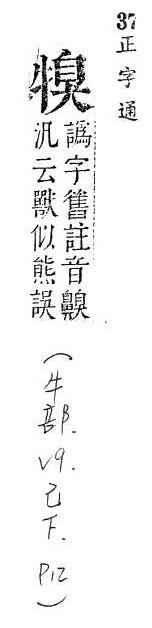 37 正字通
犑
譌字舊註音鼳
汎云獸似熊誤
(牛部. v9. 己下. P12)